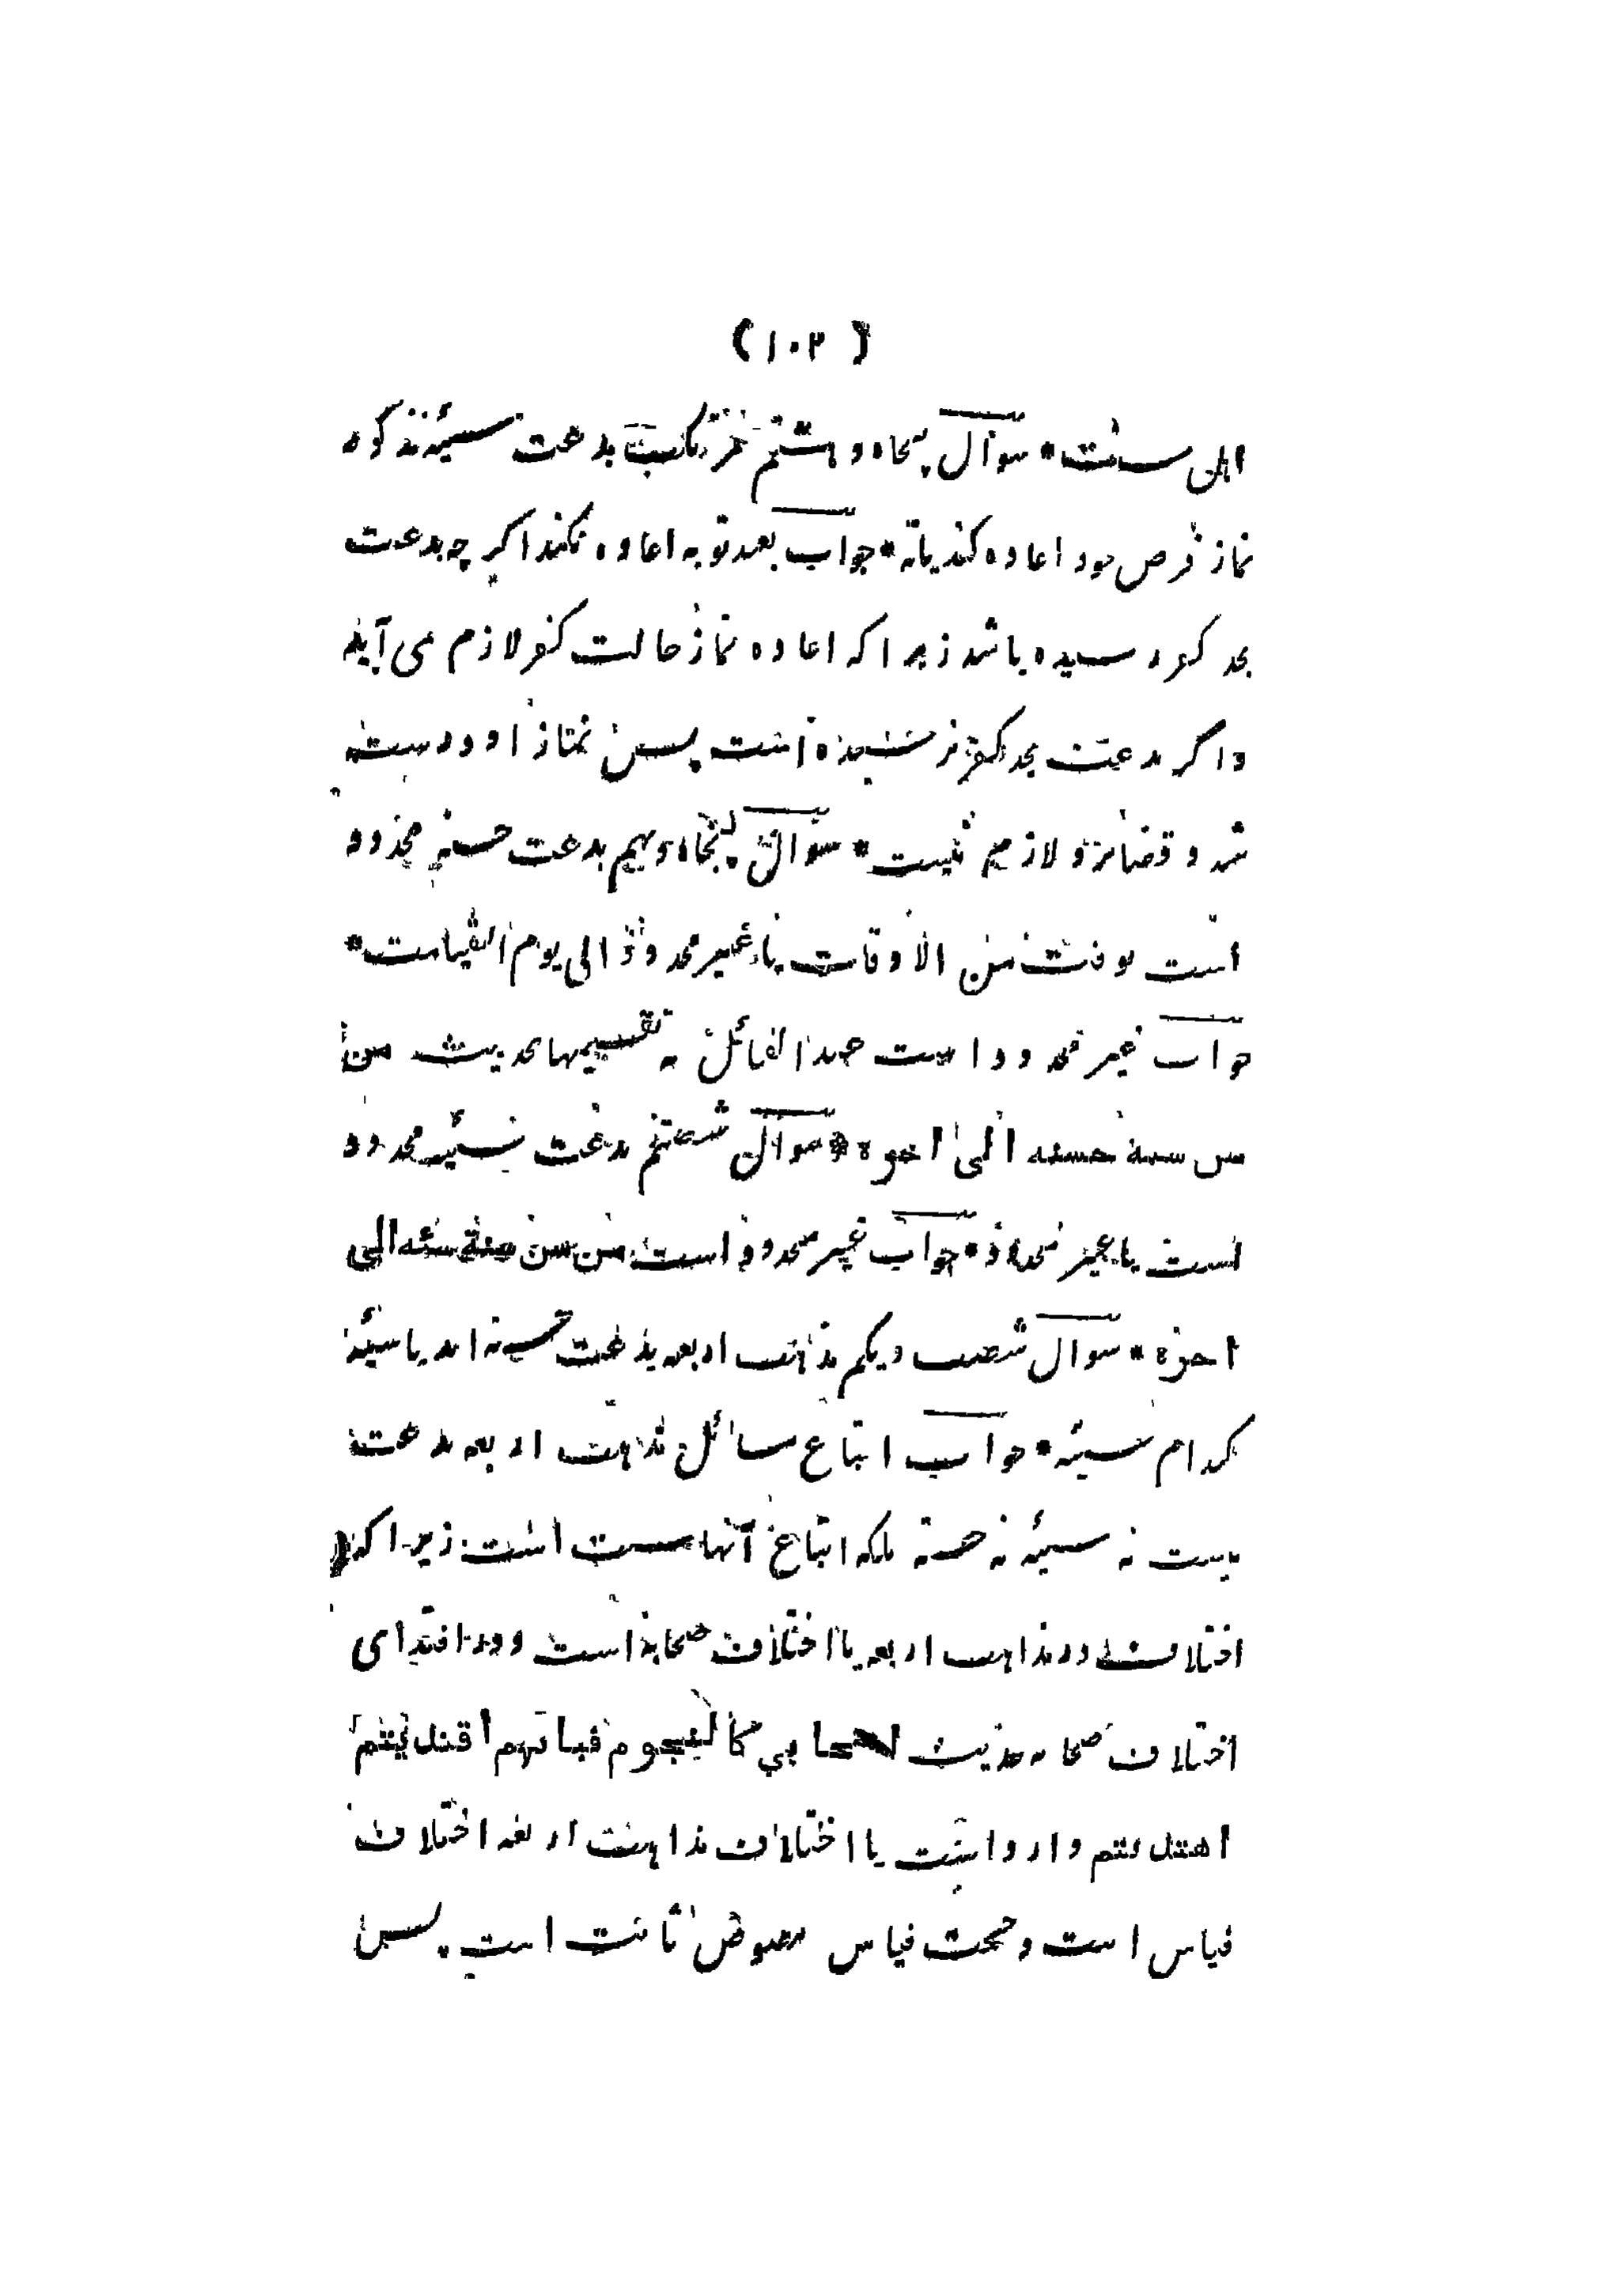 ( ۱۰۲ )
اہل سنت * سوال پنجاہ و ہشتم مرتکب بدعت سیئہ مذکورہ
نماز فرض خود اعادہ کند یا نہ * جواب بعد توبہ اعادہ نکند اگر چہ بدعت
بحد کفر رسیدہ باشد زیرا کہ اعادہ نماز حالت کفر لازم می آید
و اگر بدعت بحد کفر نرسیدہ است پس نماز او درست
شد و قضا برو لازم نیست * سوال پنجاہ و نہم بدعت حسنہ محدود
است بوقت من الاوقات یا غیر محدود الی یوم القیامت *
جواب غیر محدود است عند القائل بہ تقسیمہا بحدیث من
سن سنة حسنه الی اخره * سوال شصتم بدعت سیئہ محدود
است یا غیر محدود * جواب غیر محدود است من سن سنة سئه الی
اخره * سوال شصت و یکم مذاہب اربعہ بدعت حسنہ اند یا سیئہ
کدام سیئہ * جواب اتباع مسائل مذاہب اربعہ بدعت
نیست نہ سیئہ نہ حسنہ بلکہ اتباع آنہا سنت است زیرا کہ
اختلاف در مذاہب اربعہ یا اختلاف صحابہ است و در اقتدای
اختلاف صحابہ حدیث اصحابي كالنجوم فبايهم اقتديتم
اهتديتم وارد است یا اختلاف مذاہب اربعہ اختلاف
قیاس است و صحت قیاس بنصوص ثابت است پس